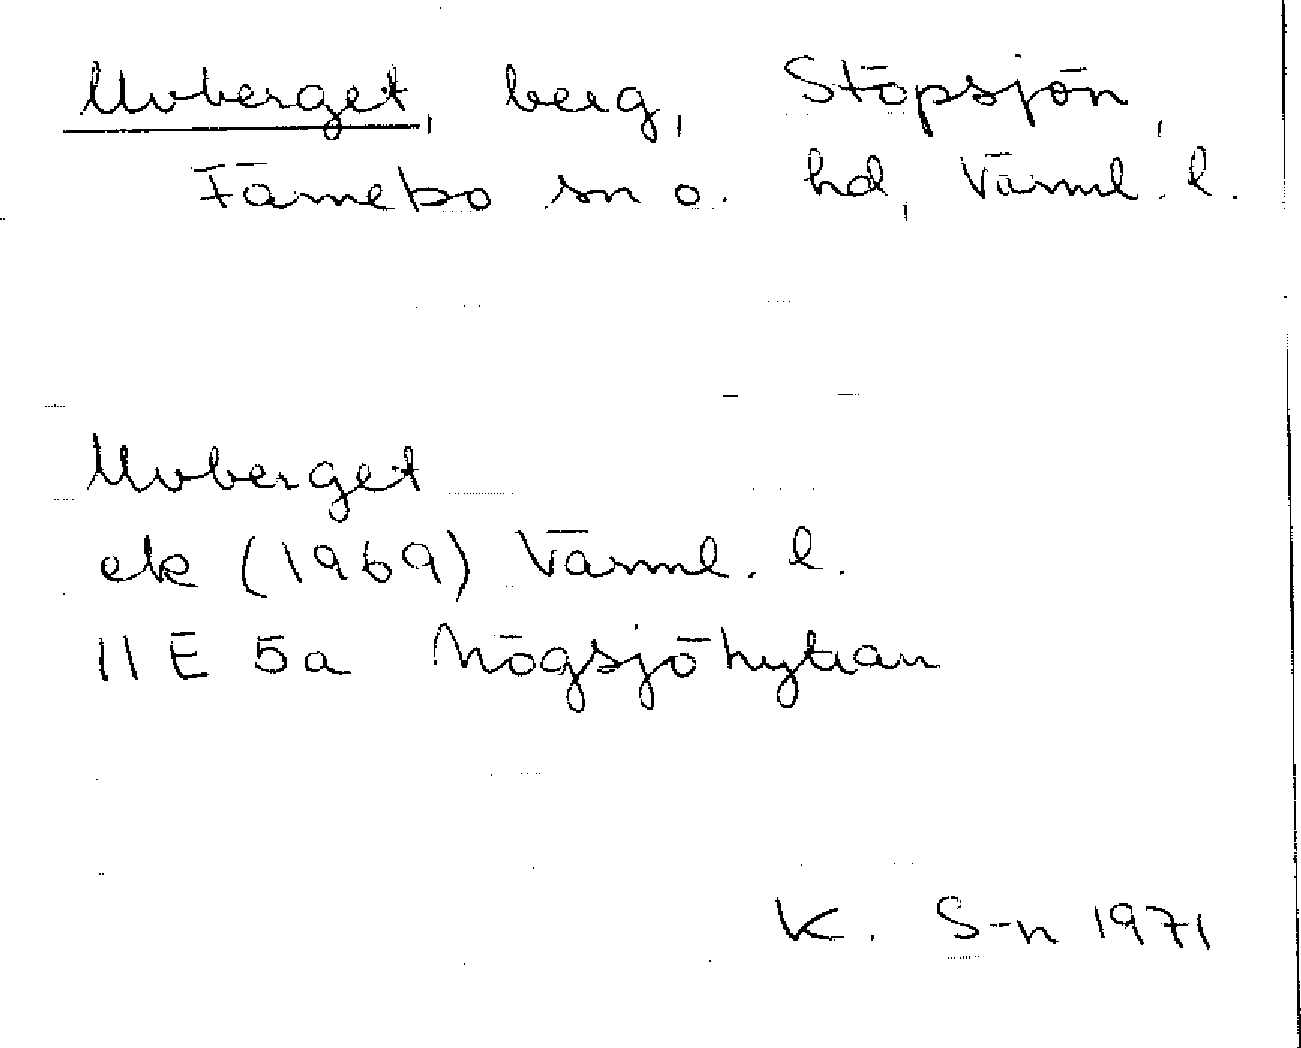 Uvberget, berg, Stöpsjön,
Färnebo sn o. hd, Värml. l.
Uvberget
ek (1969) Värml. l.
11 E 5a Nögsjöhyttan
K. S-n 1971